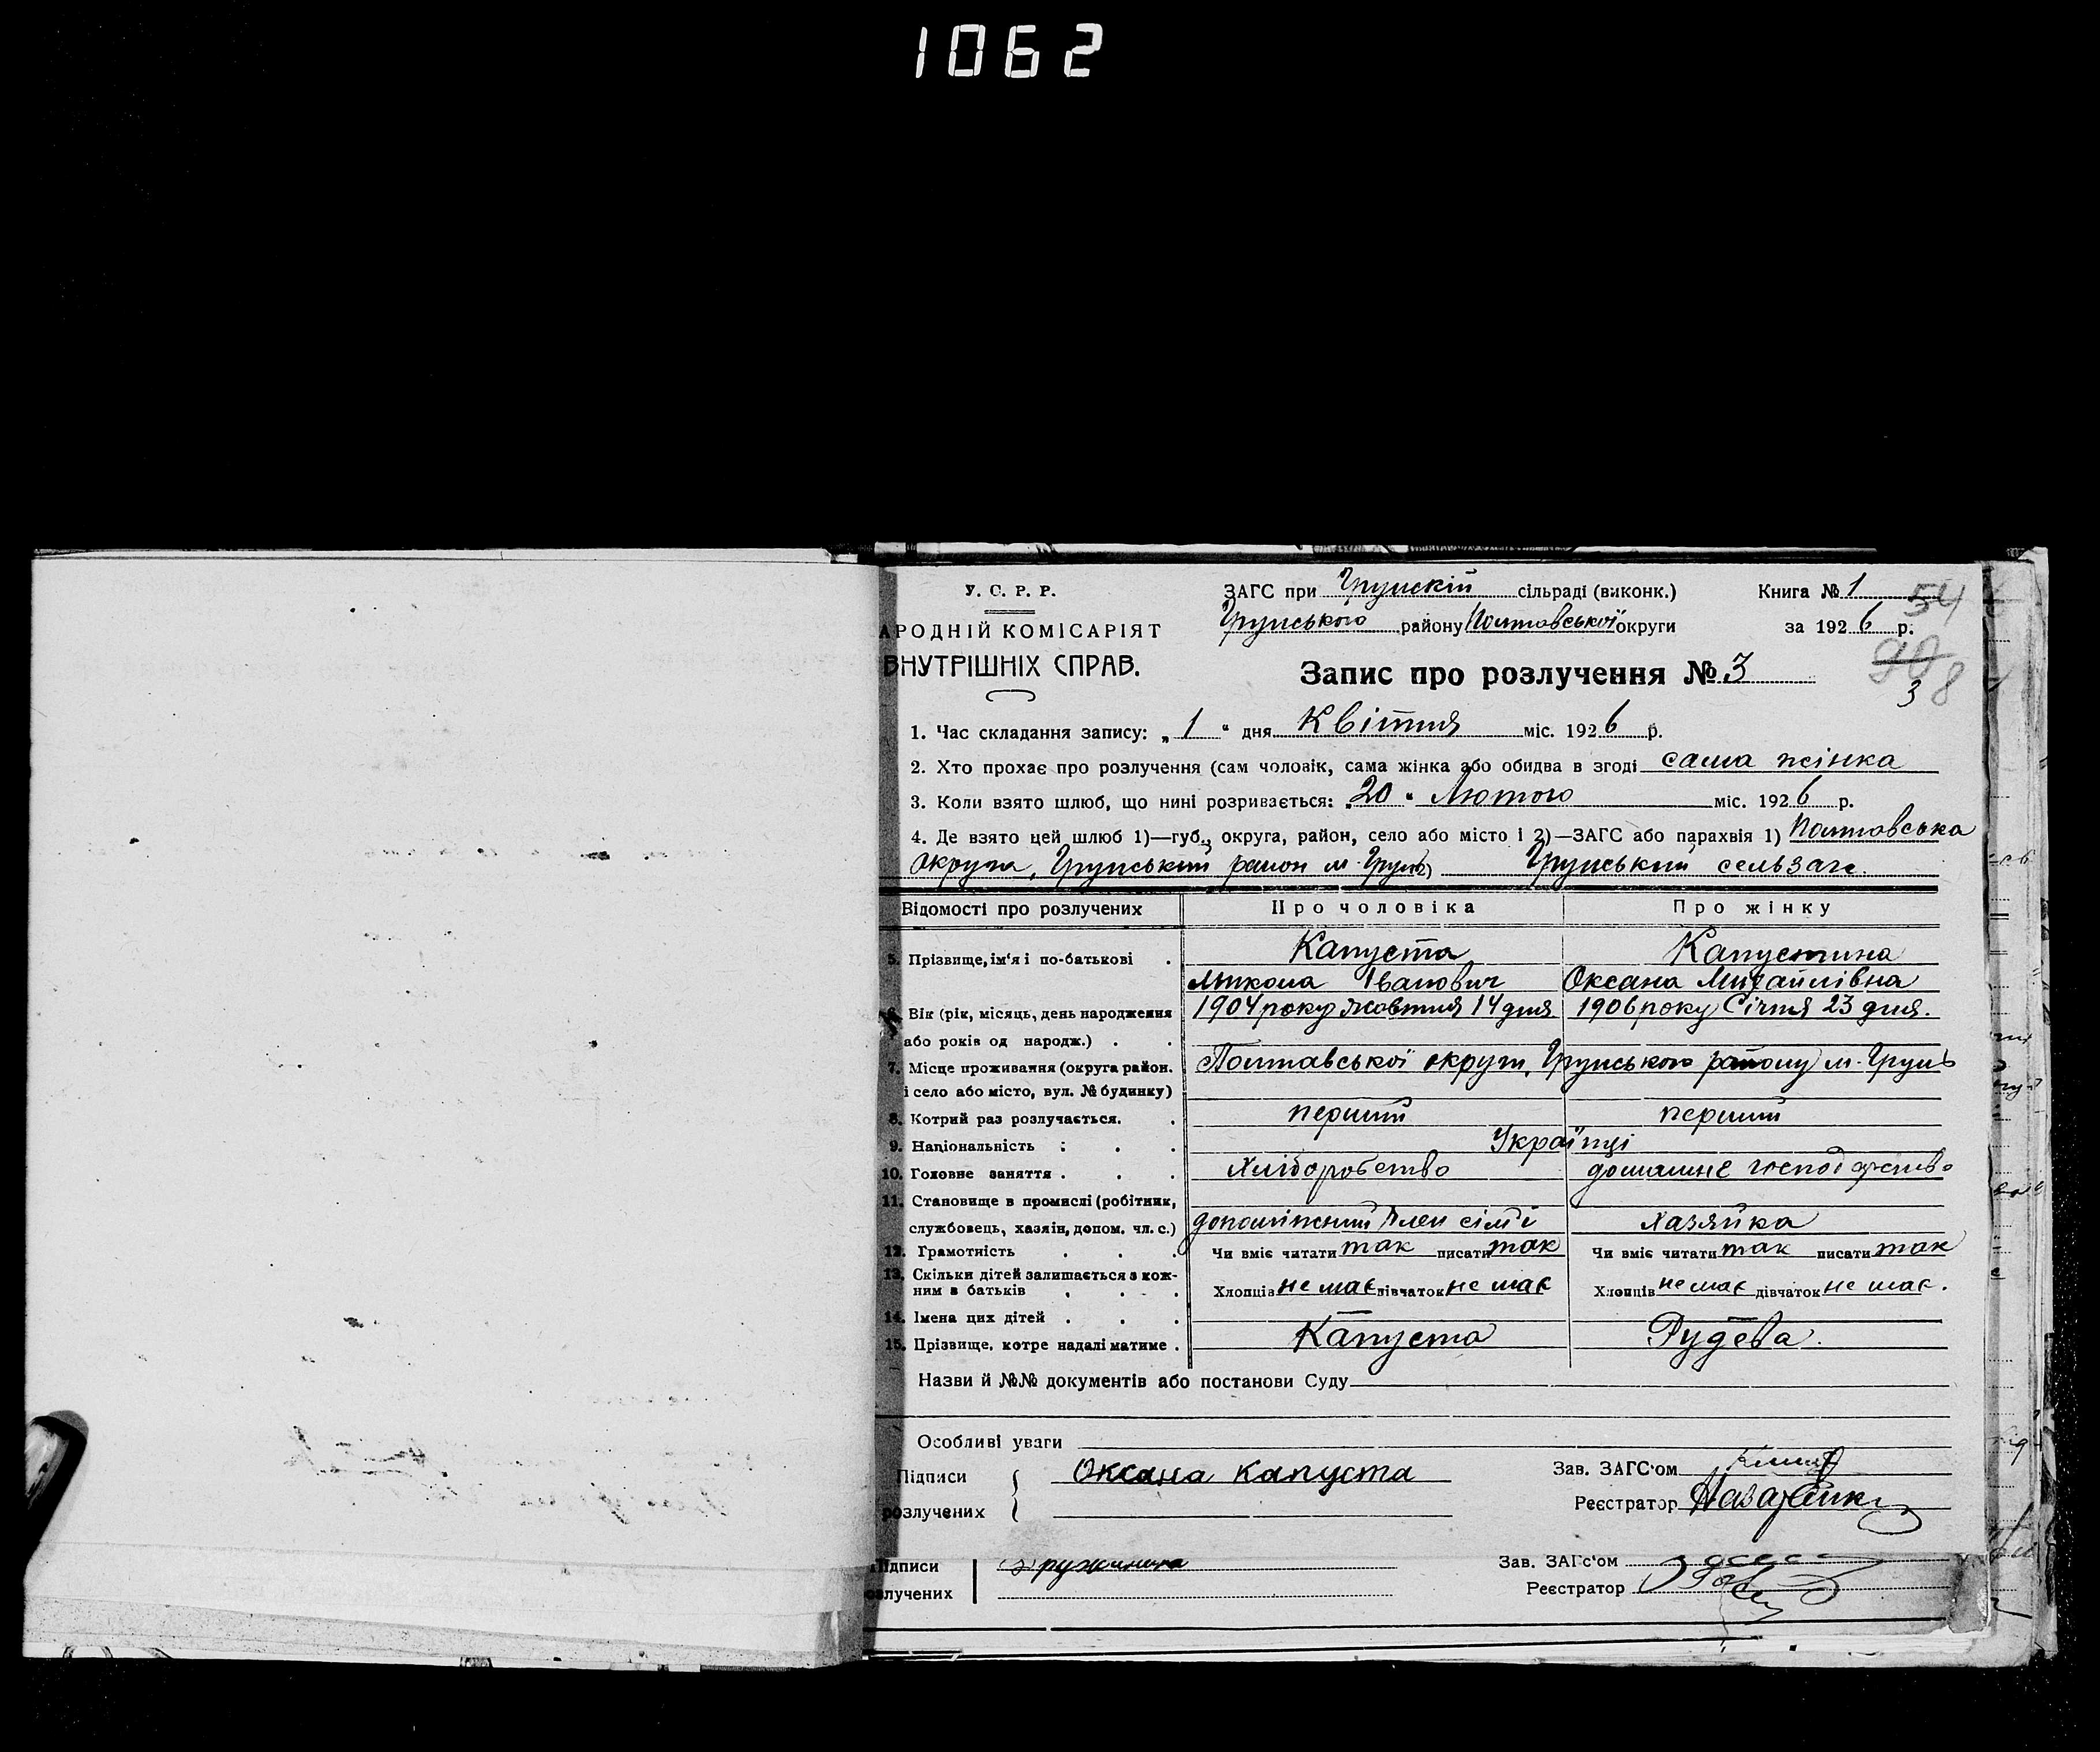 1062
У. С. Р. Р.
АРОДНІЙ КОМІСАРІЯТ
ВНУТРІШНІХ СПРАВ.
ЗАГС при Грунскій сільраді (виконк.)
Грунського району Полтавської округи
Книга № 1
54
за 1926 р.
90
8
3
Запис про розлучення № 3
1. Час складання запису: „ 1 “ дня Квітня міс. 1926 р.
2. Хто прохає про розлучення (сам чоловік, сама жінка або обидва в згоді сама жінка
3. Коли взято шлюб, що нині розривається: „20“ Лютого міс. 1926 р.
4. Де взято цей шлюб 1)—губ., округа, район, село або місто і 2)—ЗАГС або парахвія 1) Полтавська
округа, Грунський район м. Грунь 2) Грунський сельзагс.
Відомості про розлучених Про чоловіка Про жінку
5. Прізвище, ім'я і по-батькові . Капуста Капустина
Микола Іванович Оксана Михайлівна
6. Вік (рік, місяць, день народження 1904 року жовтня 14 дня 1906 року Січня 23 дня.
або років од народж.) . .
7. Місце проживання (округа район. Полтавської округи, Грунського району м. Грунь
і село або місто, вул. № будинку)
8. Котрий раз розлучається. . перший перший
9. Національність : . . Українці
10. Головне заняття . . . Хліборобство домашнє господарство
11. Становище в промислі (робітник,
службовець, хазяін, допом. чл. с.) допоміжний член сім'ї Хазяйка
12. Грамотність . . . Чи вміє читати так писати так Чи вміє читати так писати так
13. Скільки дітей залишається з кож-
ним з батьків . . . Хлопців не має дівчаток не має Хлопців не має дівчаток не має.
14. Імена цих дітей . . .
15. Прізвище, котре надалі матиме . Капуста Рудєва.
Назви й №№ документів або постанови Суду
Особливі уваги
Підписи Оксана Капуста Зав. ЗАГС'ом
розлучених Реєстратор
Підписи Зав. ЗАГс'ом
озлучених Реєстратор